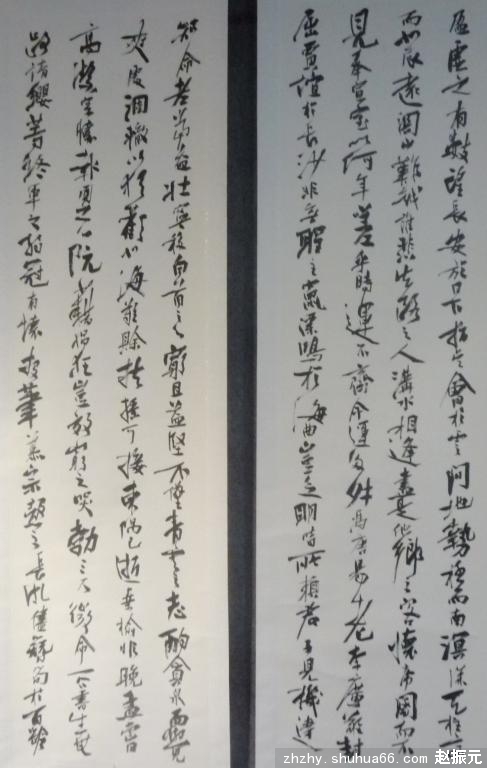 盈虛之有數望長安於日下指吳會於雲間地勢極而南溟深天柱高
而北辰遠關山難越誰悲失路之人溝水相逢盡是他鄉之客懷帝閽而不
見奉宣室以何年嗟乎時運不齊命運多舛馮唐易老李廣難封
屈賈誼於長沙非無聖主竄梁鴻於海曲豈乏明時所賴君子見機達人
知命老當益壯寧移白首之心窮且益堅不墜青雲之志酌貪泉而覺
爽處涸轍以猶歡北海雖賒扶搖可接東隅已逝桑榆非晚孟嘗
高潔空懷報國之心阮籍猖狂豈效窮途之哭勃三尺微命一介書生無
路請纓等終軍之弱冠有懷投筆慕宗愨之長風舍簪笏於百齡
zhzhy.shuhua66.com 赵振元